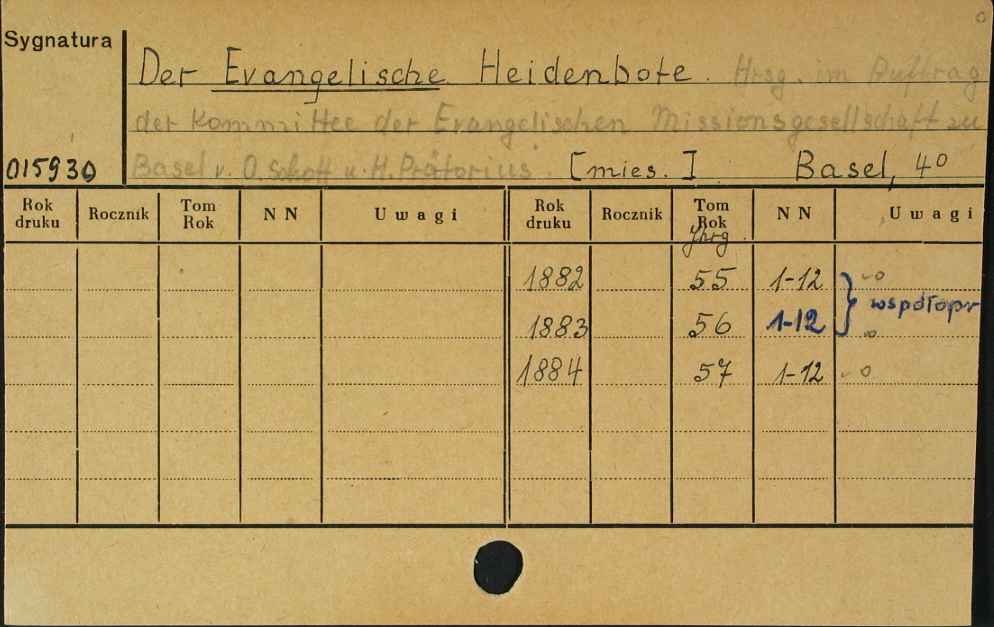 Sygnatura
Der Evangelische Heidenbote. Hrsg. im Auftrag
der Kommittee der Evangelischen Missionsgesellschaft zu
015930 Basel v. O. Schott u. H. Prätorius. [mies.] Basel, 4º
Rok druku Rocznik Tom Rok NN Uwagi Rok druku Rocznik Tom Rok Jhrg. NN Uwagi
1882 55 1-12
współopr
1883 56 1-12
1884 57 1-12